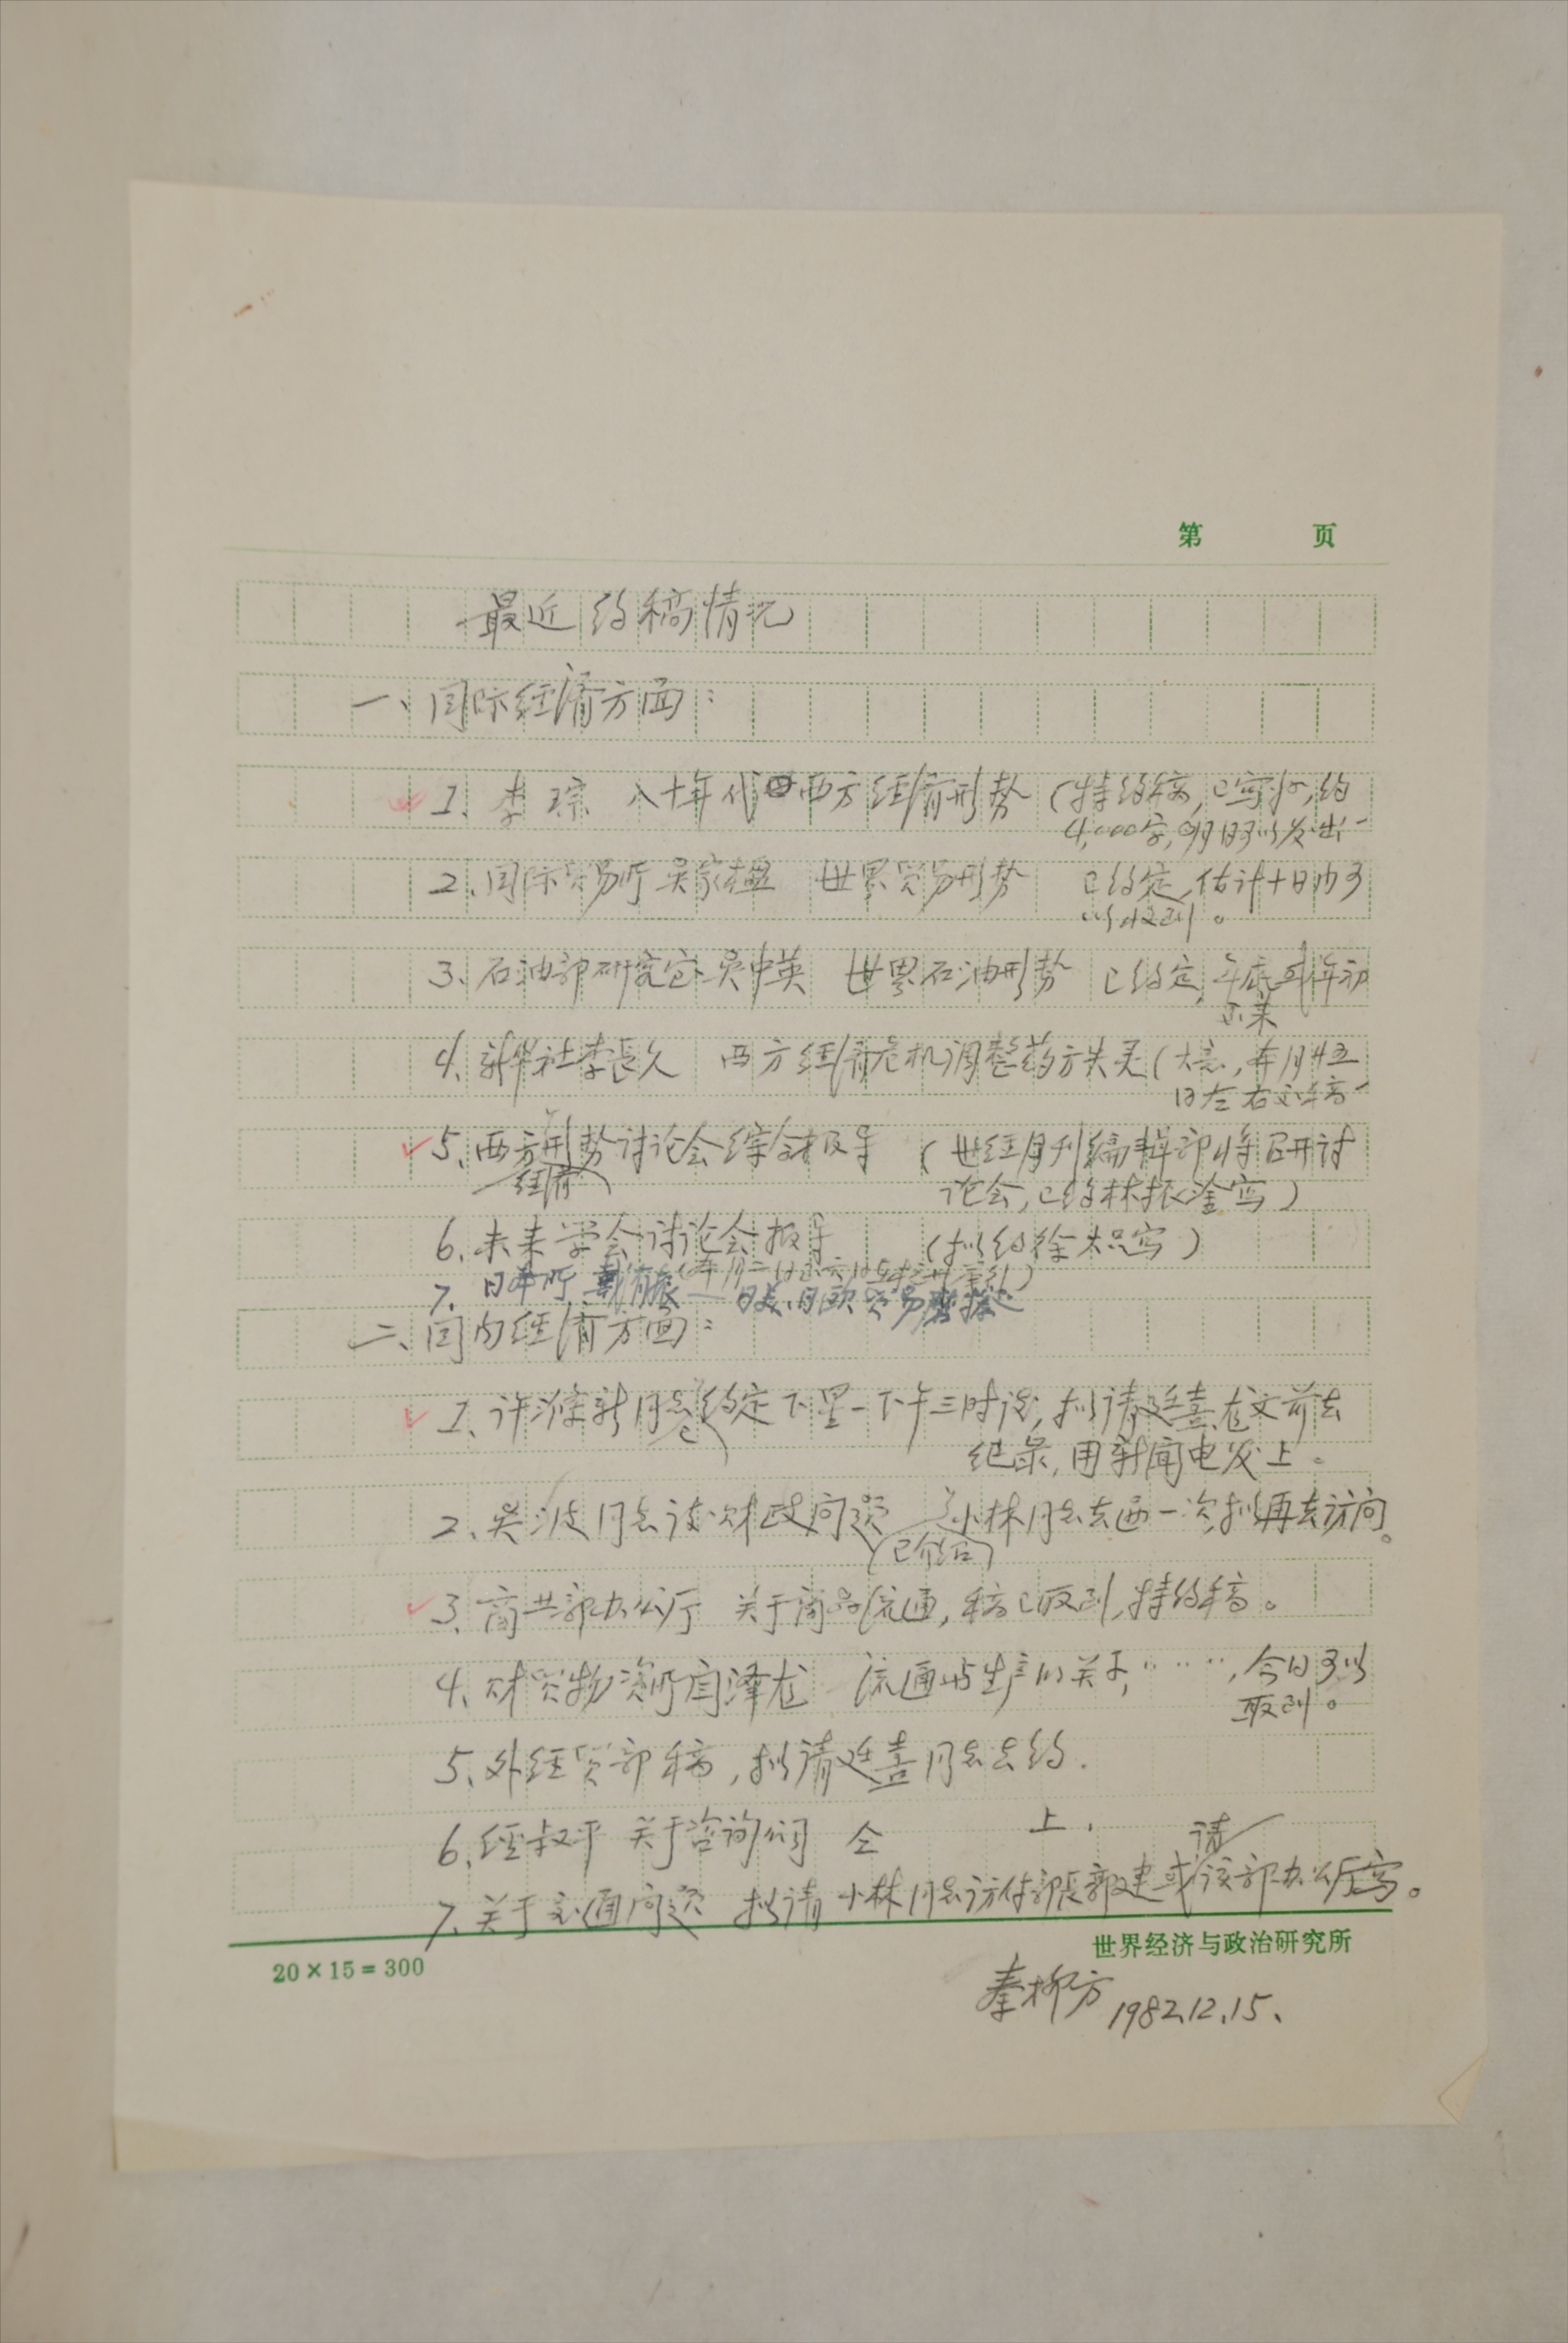 第 页
最近约稿情况
一、国际经济方面:
1、李琮 八十年代西方经济形势 (特约稿,已写好,约
4,000字,明日可以发出
2、国际贸易所 吴家 世界贸易形势 已约定,估计十日内可
以收到。
3、石油部研究室 吴中英 世界石油形势 已约定,年底或年初
交来
4、新华社李长久 西方经济危机调整药方失灵(大意,本月廿五
日左右交稿
5、西方形势讨论会综合报导 (世经月刊编辑部将召开讨
经济
论会,已约林振淦写)
6、未来学会讨论会报导 (拟约徐 写)
7、日本所 戴有振——日美、日欧贸易摩擦
二、国内经济方面:
1、许涤新同志约定下星一下午三时谈,拟请延喜、龙文前去
已
纪录,用新闻电发上。
2、吴波同志谈财政问题 小林同志去两一次,拟再去访问。
(已介绍)
3、商业部办公厅 关于商品流通,稿已收到,特约稿。
4、财贸物资所 泽龙 流通与生产的关系,"……",今日可以
取到。
5、外经贸部稿,拟请延喜同志去约.
6、经叔平 关于咨询公司 仝 上.
请
7、关于交通问题 拟请小林同志访付部长郭建或该部办公厅写。
20×15=300
世界经济与政治研究所
秦柳方 1982.12.15、